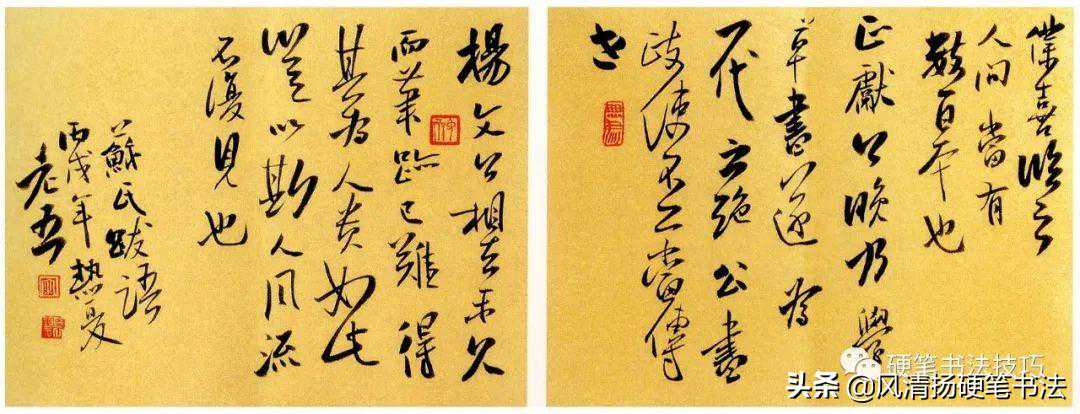 僕喜臨之
人间當有
數百本也
正獻公晚乃學
草書遂為
一代之絶公書
政使不工當傳
世
楊文公相去未久
而筆跡已難得
其為人貴如此
豈以斯人風流
不復見也
蘇氏跋語
丙戌年熱夏
硬笔书法技巧
头条@风清扬硬笔书法